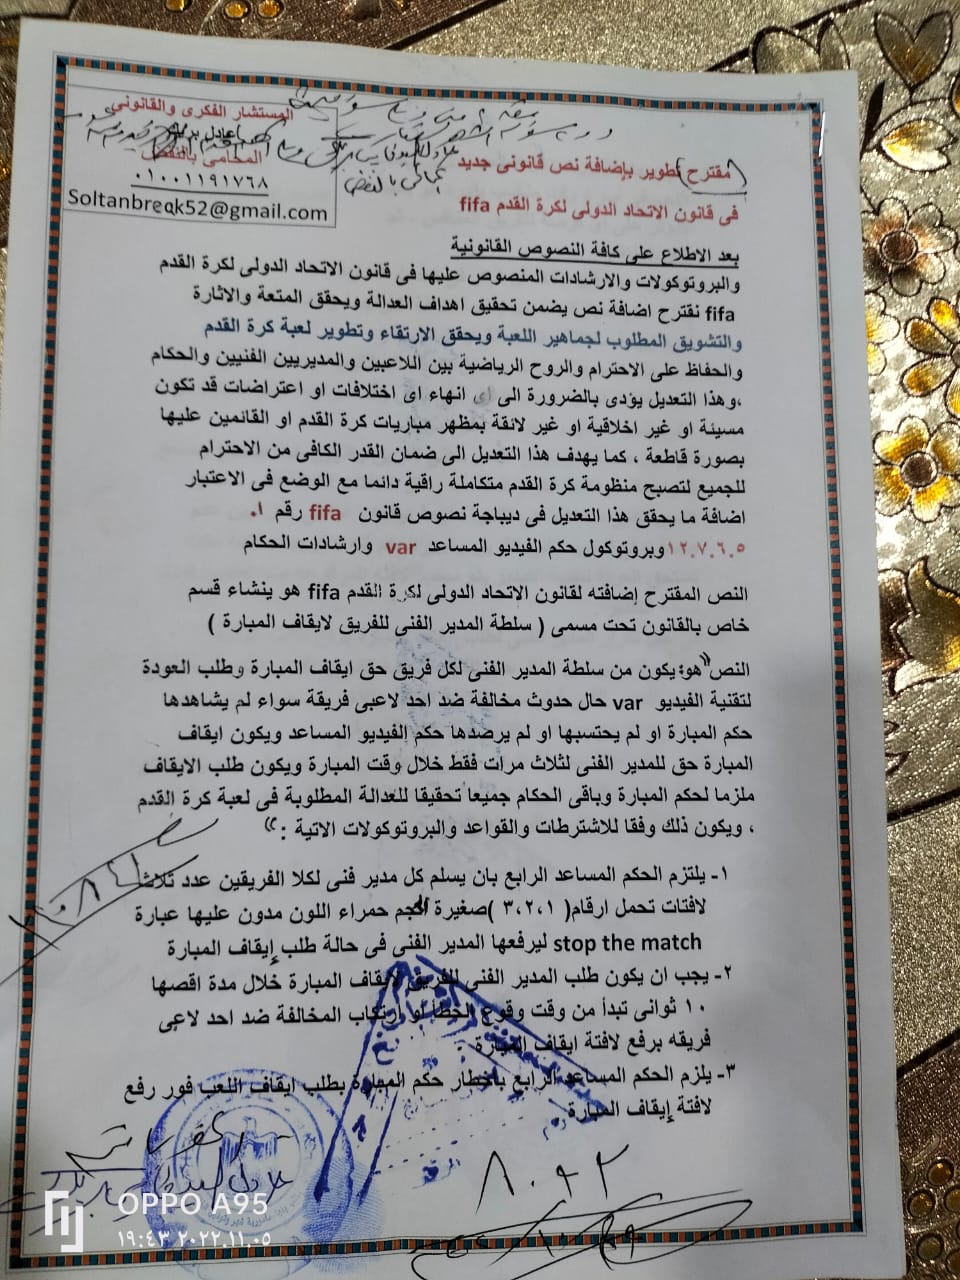 المستشار الفكرى والقانونى
المحامى بالنقض
٠١٠٠١١٩١٧٦٨
Soltanbreqk52@gmail.com
مقترح تطوير بإضافة نص قانونى جديد
فى قانون الاتحاد الدولى لكرة القدم fifa
بعد الاطلاع على كافة النصوص القانونية
والبروتوكولات والارشادات المنصوص عليها فى قانون الاتحاد الدولى لكرة القدم
fifa نقترح اضافة نص يضمن تحقيق اهداف العدالة ويحقق المتعة والاثارة
والتشويق المطلوب لجماهير اللعبة ويحقق الارتقاء وتطوير لعبة كرة القدم
والحفاظ على الاحترام والروح الرياضية بين اللاعبين والمديريين الفنيين والحكام
،وهذا التعديل يؤدى بالضرورة الى اى انهاء اى اختلافات او اعتراضات قد تكون
مسيئة او غير اخلاقية او غير لائقة بمظهر مباريات كرة القدم او القائمين عليها
بصورة قاطعة ، كما يهدف هذا التعديل الى ضمان القدر الكافى من الاحترام
للجميع لتصبح منظومة كرة القدم متكاملة راقية دائما مع الوضع فى الاعتبار
اضافة ما يحقق هذا التعديل فى ديباجة نصوص قانون fifa رقم ٠١
١٢،٧،٦،٥ وبروتوكول حكم الفيديو المساعد var وارشادات الحكام
النص المقترح إضافته لقانون الاتحاد الدولى لكرة القدم fifa هو ينشاء قسم
خاص بالقانون تحت مسمى ( سلطة المدير الفنى للفريق لايقاف المبارة )
النص "هو: يكون من سلطة المدير الفنى لكل فريق حق ايقاف المبارة وطلب العودة
لتقنية الفيديو var حال حدوث مخالفة ضد احد لاعبى فريقة سواء لم يشاهدها
حكم المبارة او لم يحتسبها او لم يرصدها حكم الفيديو المساعد ويكون ايقاف
المبارة حق للمدير الفنى لثلاث مرات فقط خلال وقت المبارة ويكون طلب الايقاف
ملزما لحكم المبارة وباقى الحكام جميعا تحقيقا للعدالة المطلوبة فى لعبة كرة القدم
، ويكون ذلك وفقا للاشترطات والقواعد والبروتوكولات الاتية :"
١- يلتزم الحكم المساعد الرابع بان يسلم كل مدير فنى لكلا الفريقين عدد ثلاث
لافتات تحمل ارقام( ٣،٢،١ )صغيرة الحجم حمراء اللون مدون عليها عبارة
stop the match ليرفعها المدير الفنى فى حالة طلب إيقاف المبارة
٢- يجب ان يكون طلب المدير الفنى للفريق لايقاف المبارة خلال مدة اقصها
١٠ ثوانى تبدأ من وقت وقوع الخطأ او ارتكاب المخالفة ضد احد لاعبى
فريقه برفع لافتة ايقاف المبارة .
٣- يلزم الحكم المساعد الرابع باخطار حكم المبارة بطلب ايقاف اللعب فور رفع
لافتة إيقاف المبارة
OPPO A95
١٩:٤٣ ٢٠٢٢.١١.٠٥